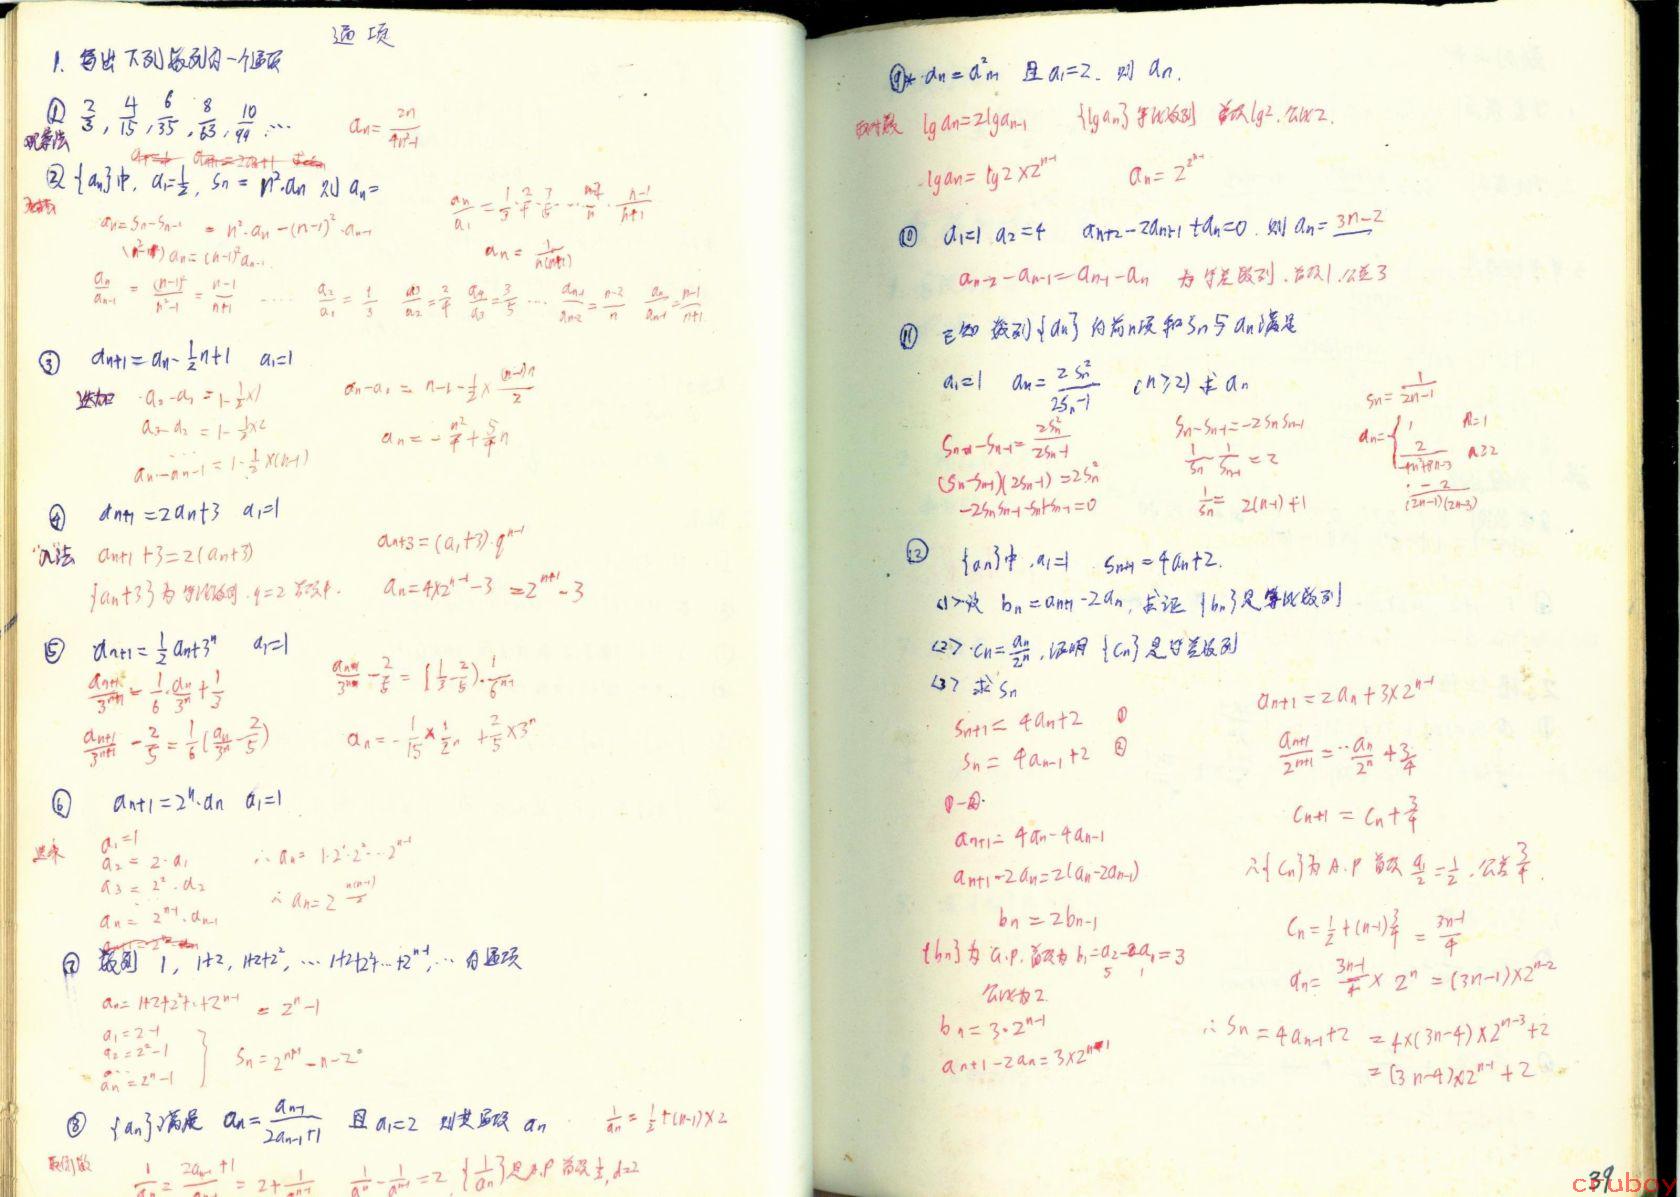 通项
1. 写出下列数列的一个通项
① 2/3, 4/15, 6/35, 8/63, 10/99, ⋯
观察法
an = 2n/(4n²-1)
② {an}中, a1=1/2, Sn = n²·an 则 an=
an = Sn-Sn-1 = n²·an-(n-1)²·an-1
(n²-1)an = (n-1)²an-1
an/an-1 = (n-1)²/(n²-1) = (n-1)/(n+1) ⋯⋯ a2/a1 = 1/3 a3/a2 = 2/4 a4/a3 = 3/5 ⋯ an-1/an-2 = (n-2)/n an/an-1 = (n-1)/(n+1)
an/a1 = 1/3 · 2/4 · 3/5 ⋯ (n-2)/n · (n-1)/(n+1)
an = 1/(n(n+1))
③ an+1 = an - 1/2 n+1 a1=1
迭加
a2-a1 = 1-1/2×1
a3-a2 = 1-1/2×2
⋯
an-an-1 = 1-1/2×(n-1)
an-a1 = n-1-1/2×(n-1)n/2
an = -n²/4+5/4 n
④ an+1 = 2an+3 a1=1
an+1+3 = 2(an+3)
{an+3}为等比数列. q=2 首项4.
an+3 = (a1+3)·q^(n-1)
an = 4×2^(n-1)-3 = 2^(n+1)-3
⑤ an+1 = 1/2 an+3^n a1=1
an+1/3^(n+1) = 1/6 · an/3^n + 1/3
an+1/3^(n+1) - 2/5 = 1/6(an/3^n - 2/5)
an/3^n - 2/5 = (1/3-2/5)·1/6^(n-1)
an = -1/15 × 1/2^n + 2/5×3^n
⑥ an+1 = 2^n·an a1=1
迭乘
a1=1
a2 = 2·a1
a3 = 2²·a2
an = 2^(n-1)·an-1
∴ an = 1·2^1·2²⋯2^(n-1)
∴ an = 2^(n(n-1)/2)
⑦ 数列 1, 1+2, 1+2+2², ⋯ 1+2+2²+⋯+2^(n-1), ⋯ 的通项
an = 1+2+2²+⋯+2^(n-1) = 2^n-1
a1 = 2-1
a2 = 2²-1
⋯
an = 2^n-1
Sn = 2^(n+1)-n-2
⑧ {an}满足 an = an-1/(2an-1+1) 且 a1=2 则其通项 an
1/an = 1/2+(n-1)×2
取倒数
1/an = (2an-1+1)/an-1 = 2+1/an-1 1/an - 1/an-1 = 2, {1/an}是A.P 首项1/2, d=2
⑨* an = a²n-1 且 a1=2. 则 an.
取对数 lg an = 2lg an-1 {lg an}等比数列 首项lg2. 公比2.
lg an = lg2×2^(n-1) an = 2^(2^(n-1))
⑩ a1=1 a2=4 an+2-2an+1+an=0. 则 an = 3n-2
an-2-an-1 = an-1-an 为等差数列. 首项1. 公差3
⑪ 已知数列{an}的前n项和Sn与an满足
a1=1 an = 2Sn²/(2Sn-1) (n≥2) 求an
Sn-Sn-1 = 2Sn²/(2Sn-1)
(Sn-Sn-1)(2Sn-1) = 2Sn²
-2SnSn-1-Sn+Sn-1=0
Sn-Sn-1 = -2SnSn-1
1/Sn - 1/Sn-1 = 2
1/Sn = 2(n-1)+1
Sn = 1/(2n-1)
an = { 1 n=1
2/(-4n²+8n-3) n≥2
-2/((2n-1)(2n-3))
⑫ {an}中. a1=1 Sn+1 = 4an+2.
<1> 设 bn = an+1-2an, 求证{bn}是等比数列
<2> cn = an/2^n, 证明{cn}是等差数列
<3> 求Sn
Sn+1 = 4an+2 ①
Sn = 4an-1+2 ②
①-②.
an+1 = 4an-4an-1
an+1-2an = 2(an-2an-1)
bn = 2bn-1
{bn}为G.P. 首项为 b1 = a2-2a1 = 3
5 1
公比为2.
bn = 3·2^(n-1)
an+1-2an = 3×2^(n-1)
an+1 = 2an+3×2^(n-1)
an+1/2^(n+1) = an/2^n + 3/4
cn+1 = cn+3/4
∴{cn}为A.P 首项 a1/2 = 1/2. 公差3/4.
cn = 1/2+(n-1)3/4 = (3n-1)/4
an = (3n-1)/4 × 2^n = (3n-1)×2^(n-2)
∴ Sn = 4an-1+2 = 4×(3n-4)×2^(n-3)+2
= (3n-4)×2^(n-1)+2
39